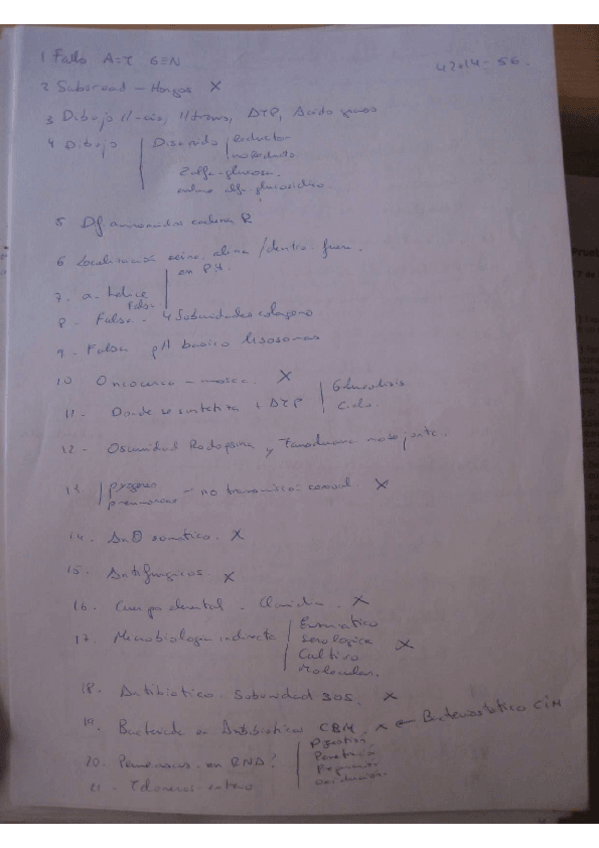 1 Fallo A=T G≡N
42+14 = 56.
2 Subaread - Hongos X
3 Dibujo 11-cis, 11 trans, DTP, Acido graso
4 Dibujo Disacarido reductor
no Reducto
2 alfa-glucosa.
enlace alfa glucosidico.
5 Df aminoacidos cadena R
6 Localización dentro-fuera.
en P4.
7. α. helice
Falsa
8. Falsa. 4 Subunidades colageno
9. Falsa pH basico lisosomas
10 Oncocerca - mosca. X
11. Donde se sintetiza + ATP Glucolisis
Ciclo.
12. Oscuridad Rodopsina y Transducina no se junta.
13 pyogenes
pneumoniae - no transmisión sexual. X
14. somatico. X
15. Antifungicos. X
16. Cuerpo elemental. Clamidia. X
17. Microbiologia indirecta Enzimatico
Serologica X
Cultivo
Molecular.
18. Antibiotico. Subunidad 30S. X
19. Bactericida en Antibioticos CBM. X ← Bacteriostatico CIM
20. en RNA?
21. Telomeros - entero